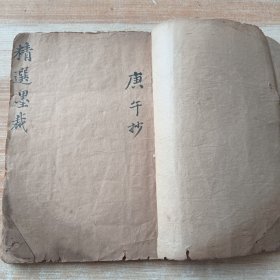 庚午抄
精選墨裁